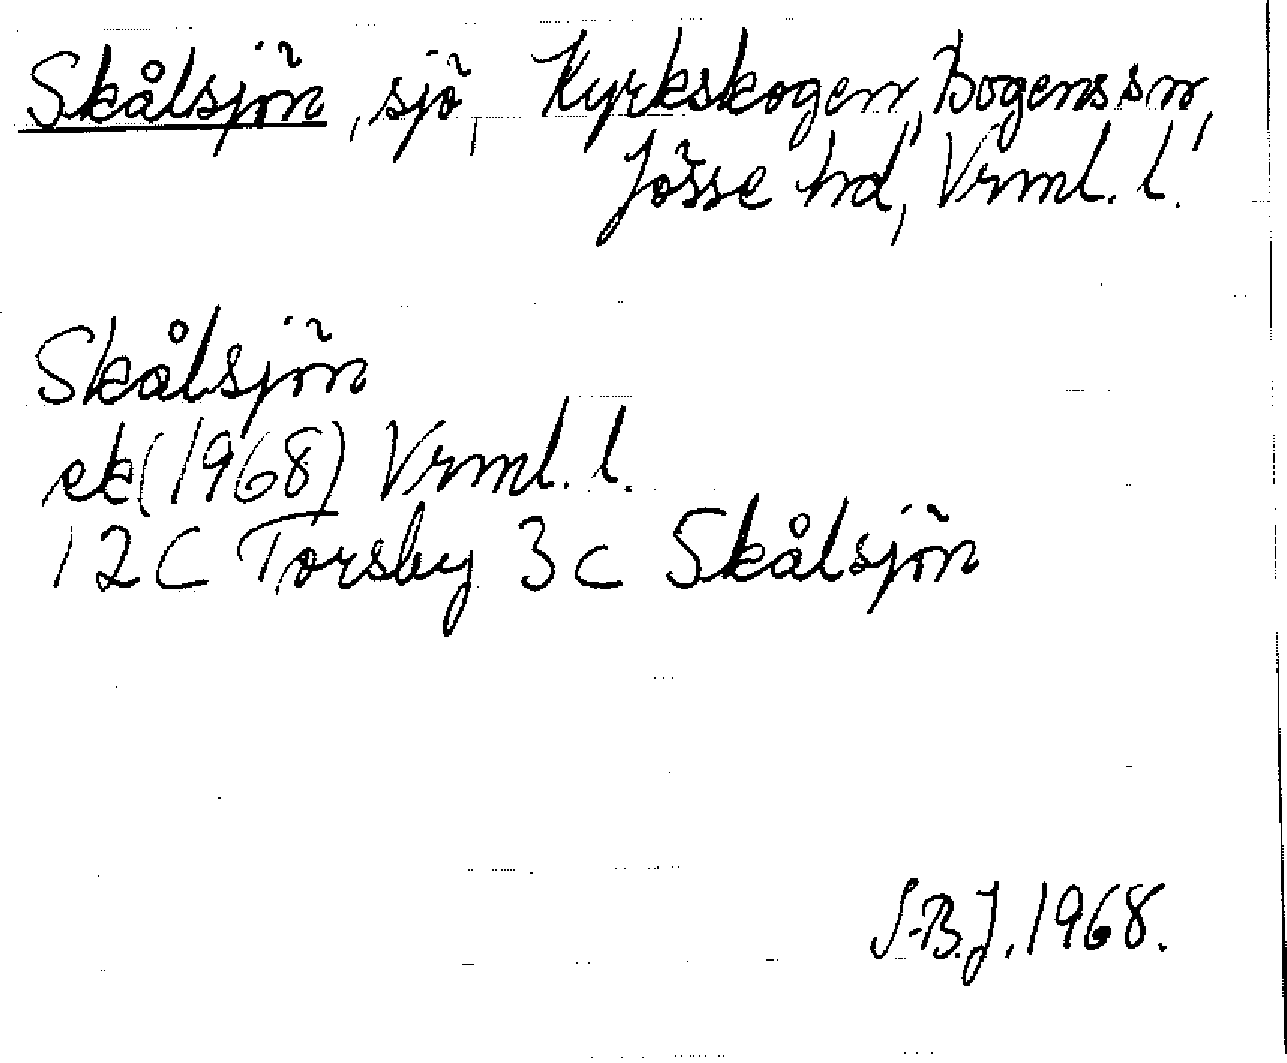 Skålsjön, sjö, Kyrkskogen, Bogens sn,
Jösse hd, Vrml. l.
Skålsjön
ek (1968) Vrml. l.
12C Torsby 3c Skålsjön
S.-B.J. 1968.